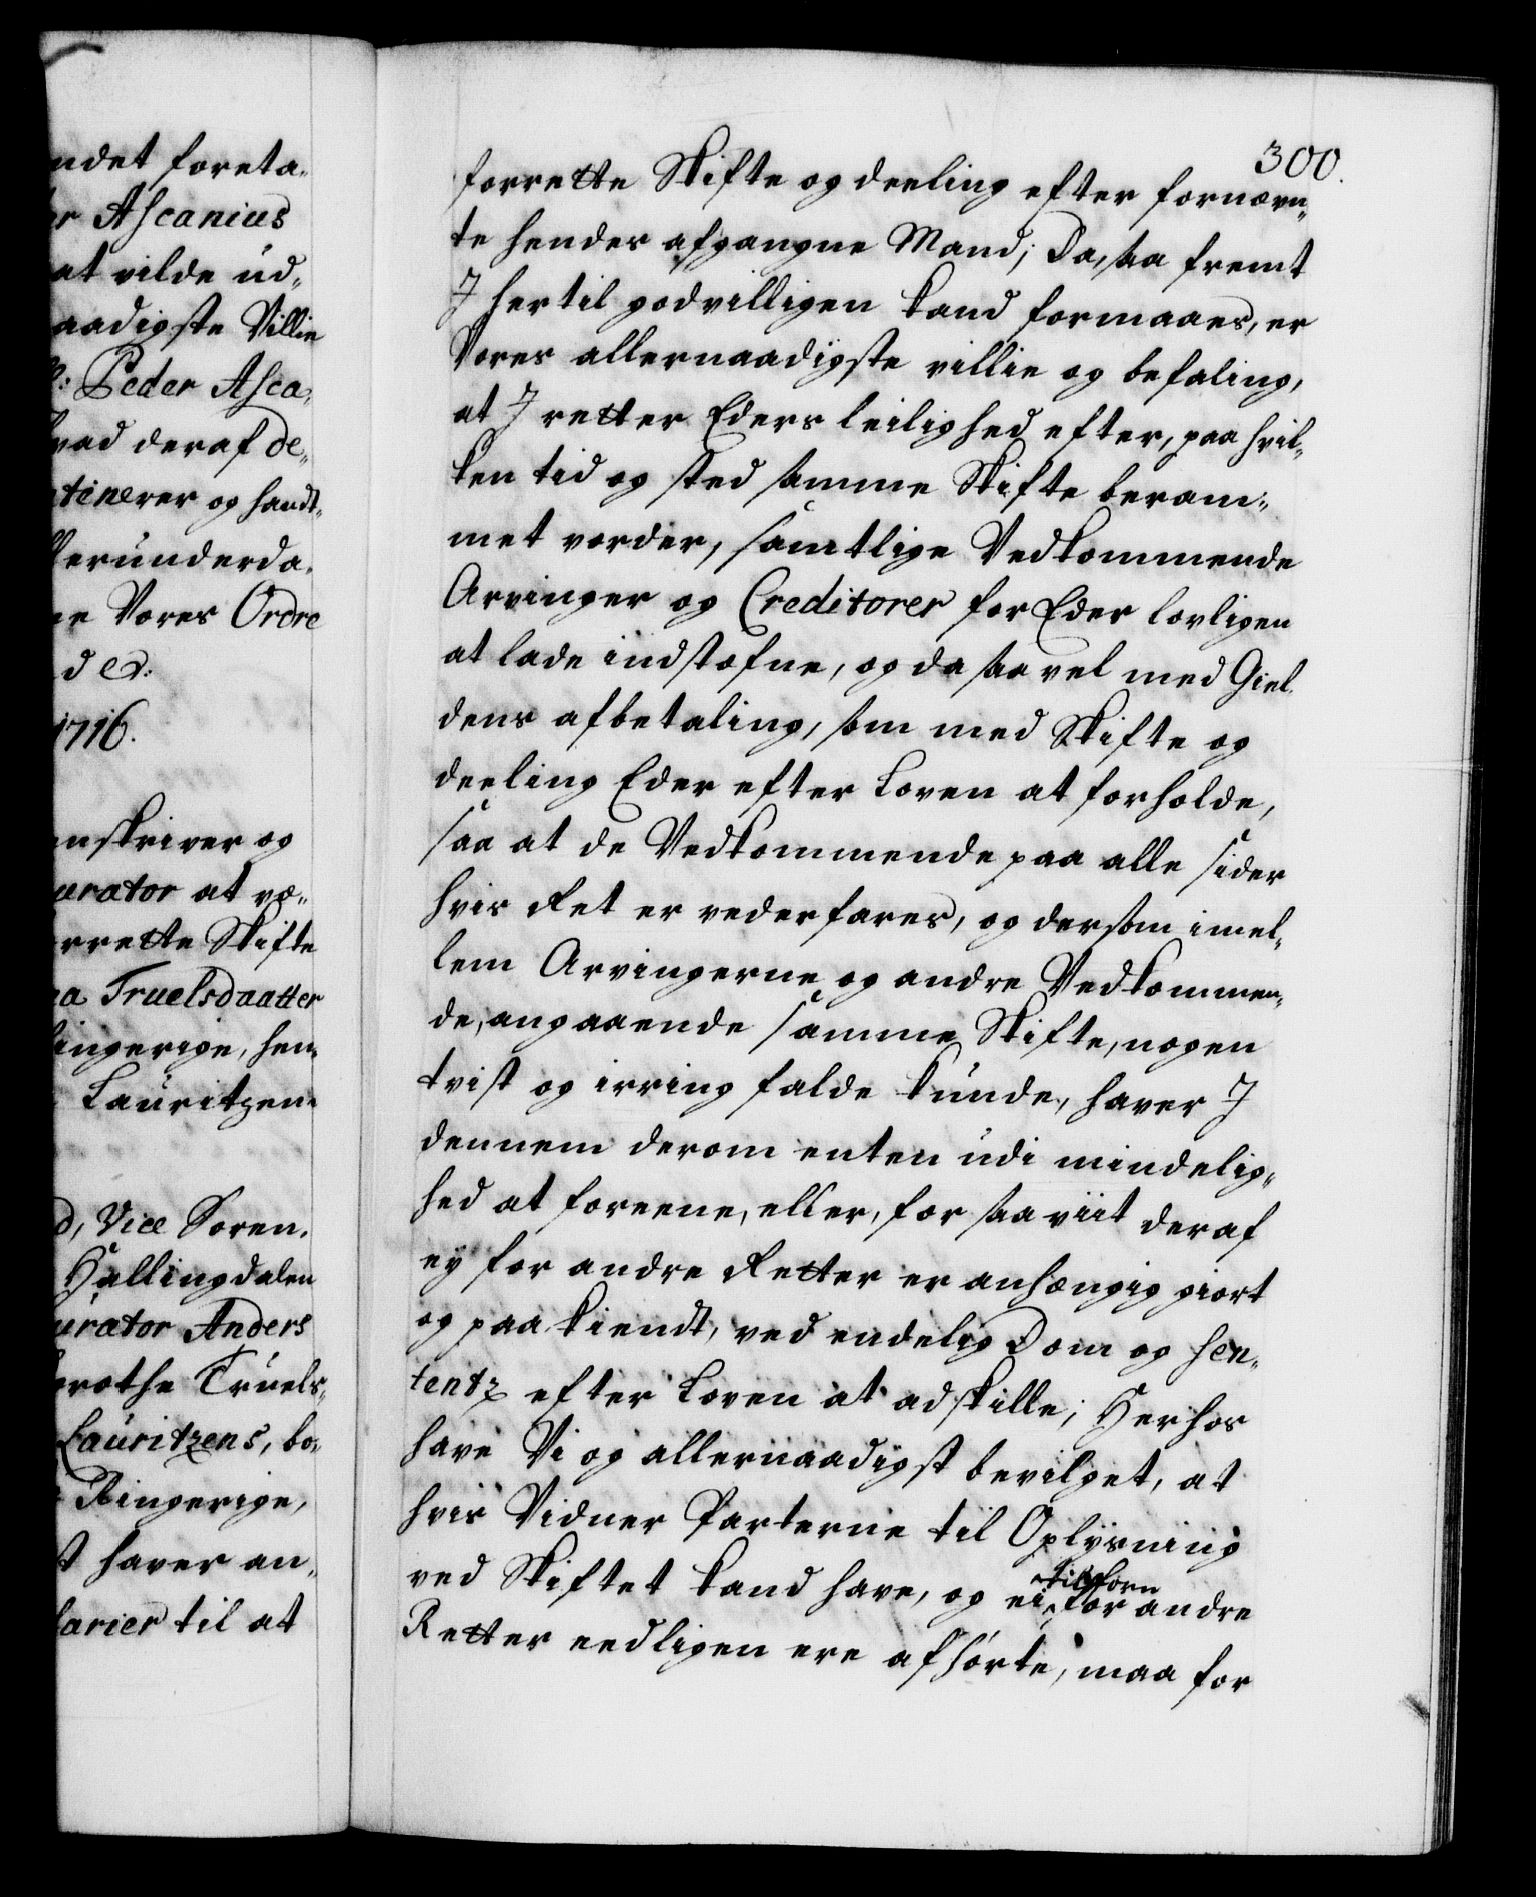 ndet foreta¬
r Ascanius
at vilde ud¬
aadigste Villie
Peder Asca¬
vad deraf de¬
tinerer og handt¬
llerunderda¬
e Vores Ordre
d etc:
1716.
nskriver og
urator at væ¬
rrette Skifte
a Truelsdaatter
ingerige, hen¬
Lauritzens
d, Vice Soren¬
Hallingdalen
urator Anders
rothe Truels¬
Lauritzens, bo¬
Ringerige,
t haver an¬
larier til at
300.
forrette Skifte og deeling efter fornævn¬
te hendes afgangne Mand; Da, saa fremt
I hertil godvilligen kand formaaes, er
Vores allernaadigste villie og befaling,
at I retter Eders leilighed efter, paa hvil¬
ken tid og sted samme Skifte beram¬
met vorder, samtlige Vedkommende
Arvinger og Creditorer for Eder lovligen
at lade indstæfne, og da saa vel med Giel¬
dens afbetaling, som med Skifte og
deeling Eder efter Loven at forholde,
saa at de Vedkommende paa alle sider
hvis Ret er vederfares, og dersom imel¬
lem Arvingerne og andre Vedkommen¬
de, angaaende samme Skifte, nogen
tvist og irring falde kunde, haver I
dennem derom enten udi mindelig¬
hed at foreene, eller, for saa viit deraf
ey for andre Retter er anhængig giort
og paakiendt, ved endelig Dom og Sen¬
tentz efter Loven at adskille; Herhos
have Vi og allernaadigst bevilget, at
hvis Vidner Parterne til Oplysning
ved Skiftet kand have, og ei tilforn for andre
Retter eedligen ere afhørte, maa for